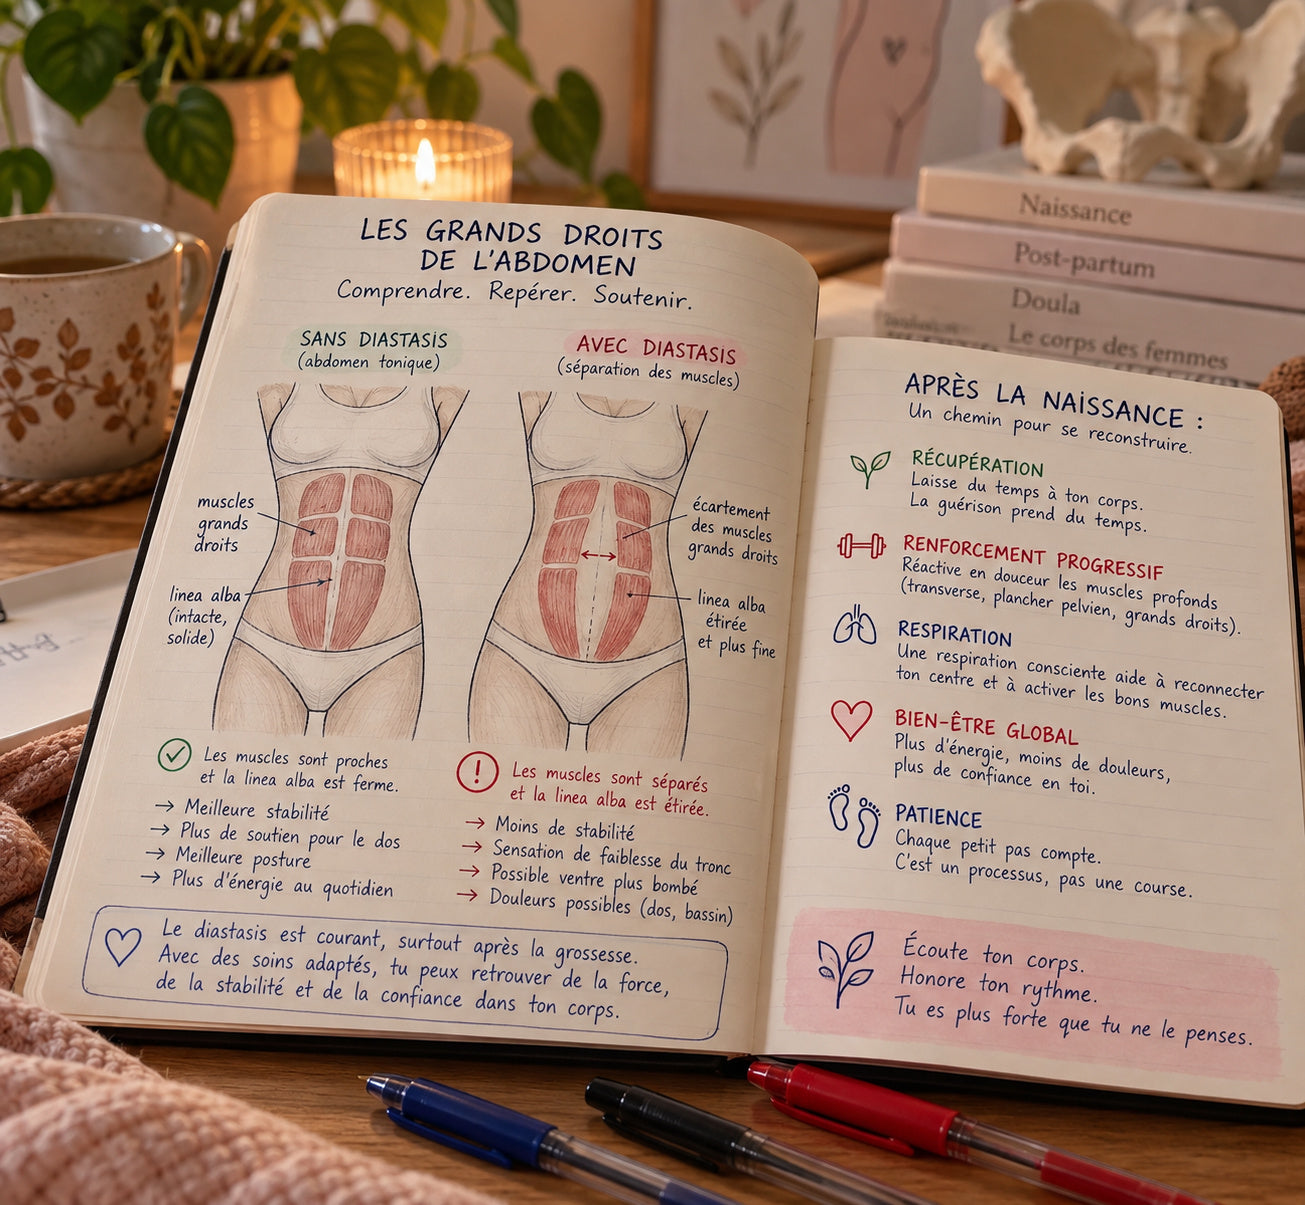 LES GRANDS DROITS
DE L'ABDOMEN
Comprendre. Repérer. Soutenir.
SANS DIASTASIS
(abdomen tonique)
muscles
grands
droits
linea alba
(intacte,
solide)
AVEC DIASTASIS
(séparation des muscles)
écartement
des muscles
grands droits
linea alba
étirée
et plus fine
Les muscles sont proches
et la linea alba est ferme.
→ Meilleure stabilité
→ Plus de soutien pour le dos
→ Meilleure posture
→ Plus d'énergie au quotidien
Les muscles sont séparés
et la linea alba est étirée.
→ Moins de stabilité
→ Sensation de faiblesse du tronc
→ Possible ventre plus bombé
→ Douleurs possibles (dos, bassin)
Le diastasis est courant, surtout après la grossesse.
Avec des soins adaptés, tu peux retrouver de la force,
de la stabilité et de la confiance dans ton corps.
APRÈS LA NAISSANCE :
Un chemin pour se reconstruire.
RÉCUPÉRATION
Laisse du temps à ton corps.
La guérison prend du temps.
RENFORCEMENT PROGRESSIF
Réactive en douceur les muscles profonds
(transverse, plancher pelvien, grands droits).
RESPIRATION
Une respiration consciente aide à reconnecter
ton centre et à activer les bons muscles.
BIEN-ÊTRE GLOBAL
Plus d'énergie, moins de douleurs,
plus de confiance en toi.
PATIENCE
Chaque petit pas compte.
C'est un processus, pas une course.
Écoute ton corps.
Honore ton rythme.
Tu es plus forte que tu ne le penses.
Naissance
Post-partum
Doula
Le corps des femmes